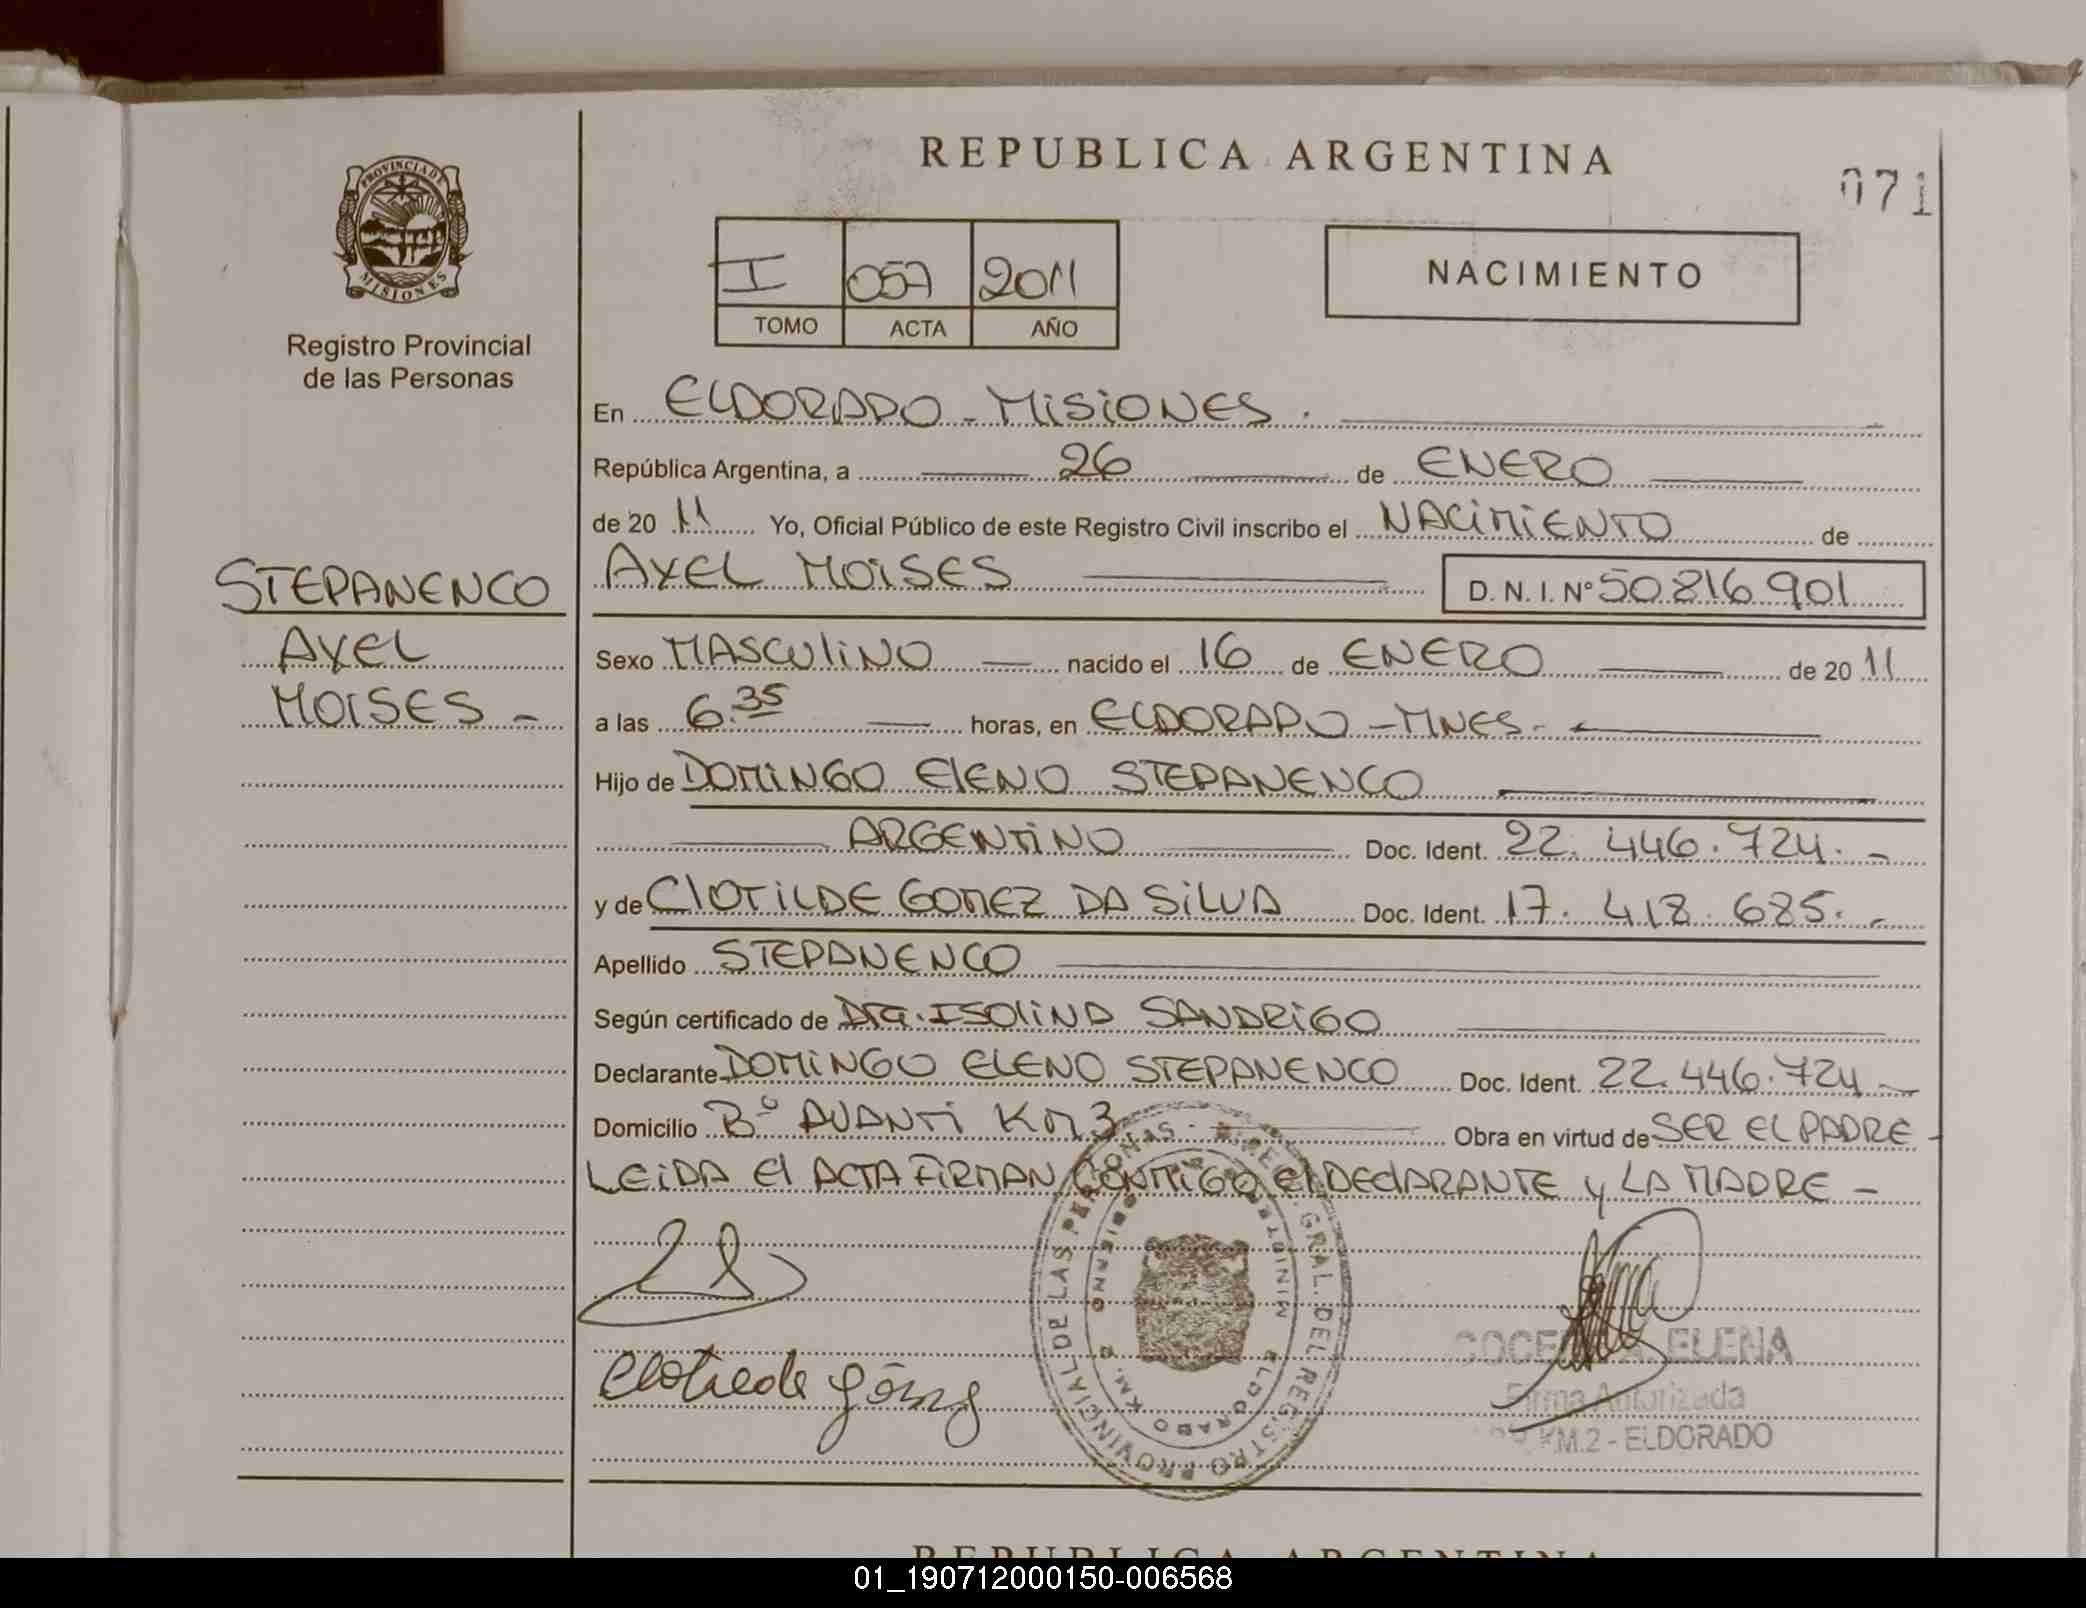 REPUBLICA ARGENTINA
071
PROVINCIA DE
MISIONES
Registro Provincial
de las Personas
I 057 2011
TOMO ACTA AÑO
NACIMIENTO
En ELDORADO - MISIONES.
República Argentina, a 26 de ENERO
de 20 11 Yo, Oficial Público de este Registro Civil inscribo el NACIMIENTO de
STEPANENCO
AXEL
MOISES -
AXEL MOISES D. N. I. Nº 50.816.901
Sexo MASCULINO nacido el 16 de ENERO de 20 11
a las 6.35 horas, en ELDORADO - MNES.
Hijo de DOMINGO ELENO STEPANENCO
ARGENTINO Doc. Ident. 22.446.724.-
y de CLOTILDE GOMEZ DA SILVA Doc. Ident. 17.418.685.-
Apellido STEPANENCO
Según certificado de Dra. ISOLINA SANDRIGO
Declarante DOMINGO ELENO STEPANENCO Doc. Ident. 22.446.724.-
Domicilio Bº AVANTI KM 3 Obra en virtud de SER EL PADRE -
LEIDA El ACTA FIRMAN CONMIGO El DEClARANTE y LA MADRE -
GRAL. DEL REGISTRO PROVINCIAL DE LAS PERSONAS
ELDORADO KM. 2
ELENA
Firma Autorizada
KM.2 - ELDORADO
REPUBLICA ARGENTINA
01_190712000150-006568